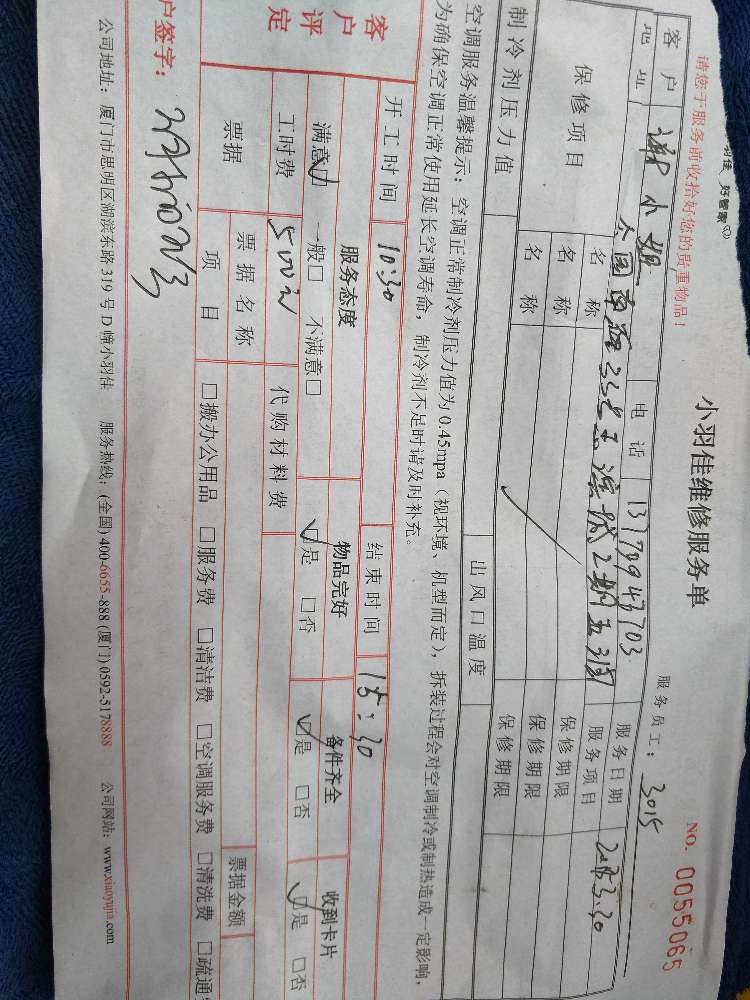 好管家
请您于服务前收拾好您的贵重物品!
小羽佳维修服务单
NO. 0055065
服务员工: 3015
客户 谢小姐 电话 13779947703 服务日期 3.30
地址
保修项目 名称 服务项目
名称 保修期限
名称 保修期限
制冷剂压力值 出风口温度 保修期限
空调服务温馨提示: 空调正常制冷剂压力值为0.45mpa (视环境、机型而定), 拆装过程会对空调制冷或制热造成一定影响,
为确保空调正常使用延长空调寿命, 制冷剂不足时请及时补充。
开工时间 10:30 结束时间 15:30
客户评定 服务态度 物品完好 备件齐全 收到卡片
满意☑ 一般□ 不满意□ ☑是 □否 ☑是 □否 ☑是 □否
工时费 500元 代购材料费
票据 票据名称 票据金额
项目 □搬办公用品 □服务费 □清洁费 □空调服务费 □清洗费 □疏通
户签字:
公司地址: 厦门市思明区湖滨东路319号D幢小羽佳 服务热线: (全国) 400-6655-888 (厦门) 0592-5178888 公司网站: www.xiaoyujia.com